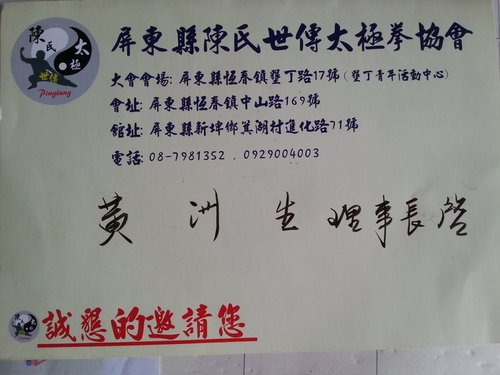 陳氏 太極
世傳
Pingtung
屏東縣陳氏世傳太極拳協會
大會會場: 屏東縣恆春鎮墾丁路17號(墾丁青年活動中心)
會址: 屏東縣恆春鎮中山路169號
館址: 屏東縣新埤鄉萬湖村進化路71號
電話: 08-7981352 . 0929004003
黃 洲 生 理事長 啓
誠懇的邀請您